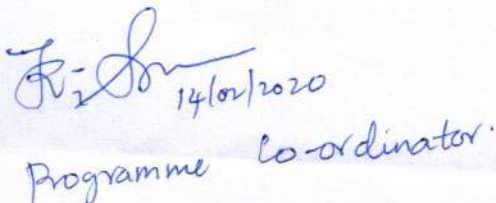 14/02/2020
Programme Co-ordinator.